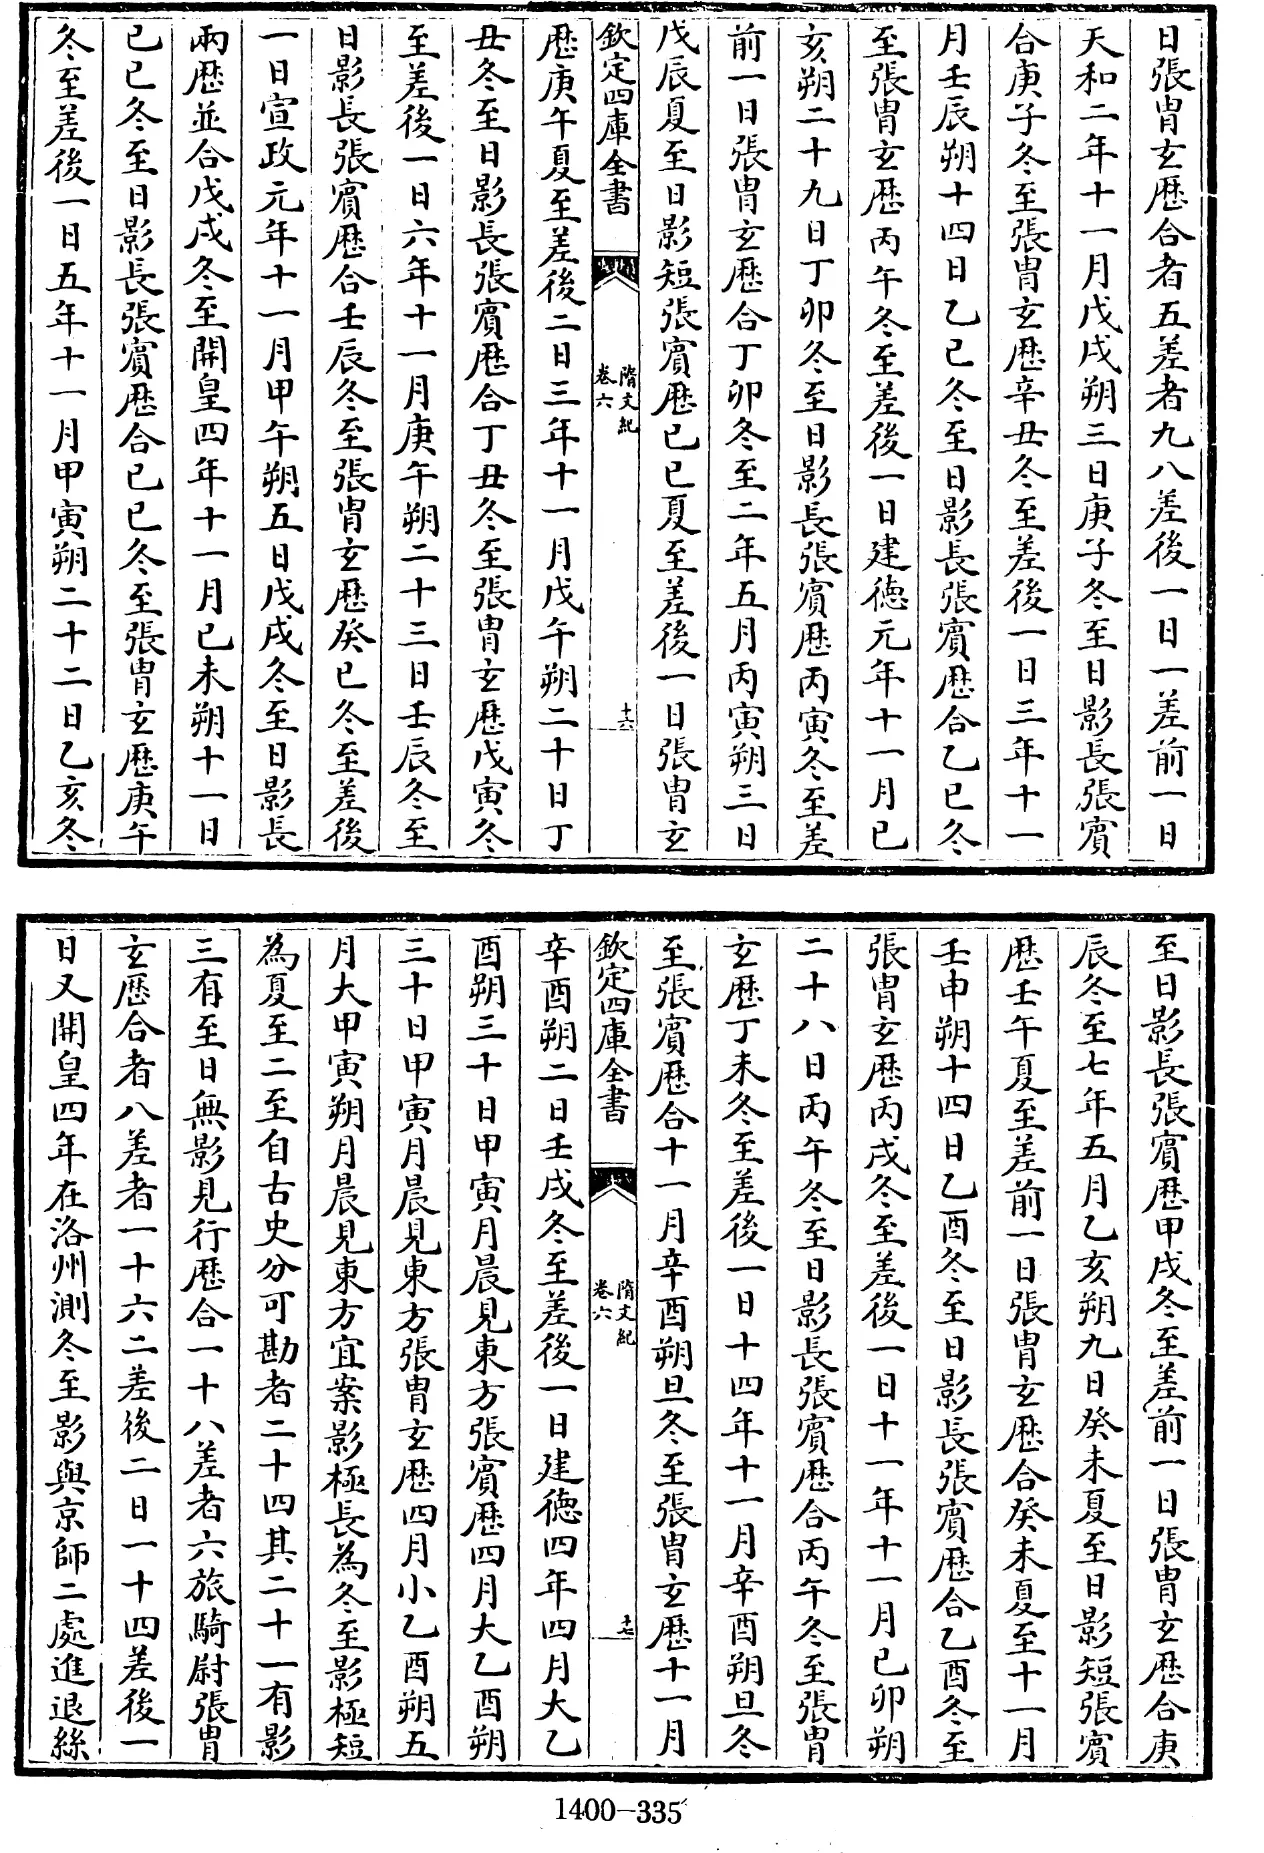 日張胄玄歴合者五差者九八差後一日一差前一日
天和二年十一月戊戌朔三日庚子冬至日影長張賔
合庚子冬至張胄玄歴辛丑冬至差後一日三年十一
月壬辰朔十四日乙已冬至日影長張賔歴合乙已冬
至張胄玄歴丙午冬至差後一日建德元年十一月已
亥朔二十九日丁卯冬至日影長張賔歴丙寅冬至差
前一日張胄玄歴合丁卯冬至二年五月丙寅朔三日
戊辰夏至日影短張賔歴已已夏至差後一日張胄玄
欽定四庫全書
隋文紀
卷六
十六
歴庚午夏至差後二日三年十一月戊午朔二十日丁
丑冬至日影長張賔歴合丁丑冬至張胄玄歴戊寅冬
至差後一日六年十一月庚午朔二十三日壬辰冬至
日影長張賔歴合壬辰冬至張胄玄歴癸已冬至差後
一日宣政元年十一月甲午朔五日戊戌冬至日影長
兩歴並合戊戌冬至開皇四年十一月已未朔十一日
已已冬至日影長張賔歴合已已冬至張胄玄歴庚午
冬至差後一日五年十一月甲寅朔二十二日乙亥冬
至日影長張賔歴甲戌冬至差前一日張胄玄歴合庚
辰冬至七年五月乙亥朔九日癸未夏至日影短張賔
歴壬午夏至差前一日張胄玄歴合癸未夏至十一月
壬申朔十四日乙酉冬至日影長張賔歴合乙酉冬至
張胄玄歴丙戌冬至差後一日十一年十一月已卯朔
二十八日丙午冬至日影長張賔歴合丙午冬至張胄
玄歴丁未冬至差後一日十四年十一月辛酉朔旦冬
至張賔歴合十一月辛酉朔旦冬至張胄玄歴十一月
欽定四庫全書
隋文紀
卷六
十七
辛酉朔二日壬戌冬至差後一日建德四年四月大乙
酉朔三十日甲寅月晨見東方張賔歴四月大乙酉朔
三十日甲寅月晨見東方張胄玄歴四月小乙酉朔五
月大甲寅朔月晨見東方宜案影極長為冬至影極短
為夏至二至自古史分可勘者二十四其二十一有影
三有至日無影見行歴合一十八差者六旅騎尉張胄
玄歴合者八差者一十六二差後二日一十四差後一
日又開皇四年在洛州測冬至影與京師二處進退絲
1400-335